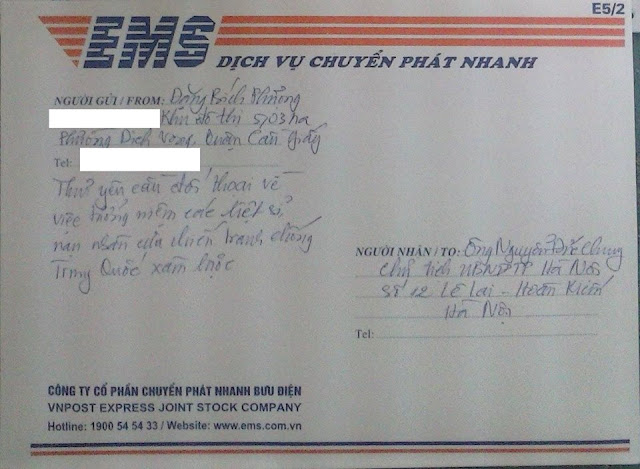 E5/2
EMS
DỊCH VỤ CHUYỂN PHÁT NHANH
NGƯỜI GỬI / FROM: Đặng Bích Phượng
Khu đô thị 5,03 ha
Phường Dịch Vọng, Quận Cầu Giấy
Tel:
Thư yêu cầu đối thoại về
việc tưởng niệm các liệt sĩ,
nạn nhân của chiến tranh chống
Trung Quốc xâm lược
NGƯỜI NHẬN / TO: Ông Nguyễn Đức Chung
Chủ tịch UBNDTP Hà Nội
Số 12 Lê Lai - Hoàn Kiếm
Hà Nội
Tel:
CÔNG TY CỔ PHẦN CHUYỂN PHÁT NHANH BƯU ĐIỆN
VNPOST EXPRESS JOINT STOCK COMPANY
Hotline: 1900 54 54 33 / Website: www.ems.com.vn